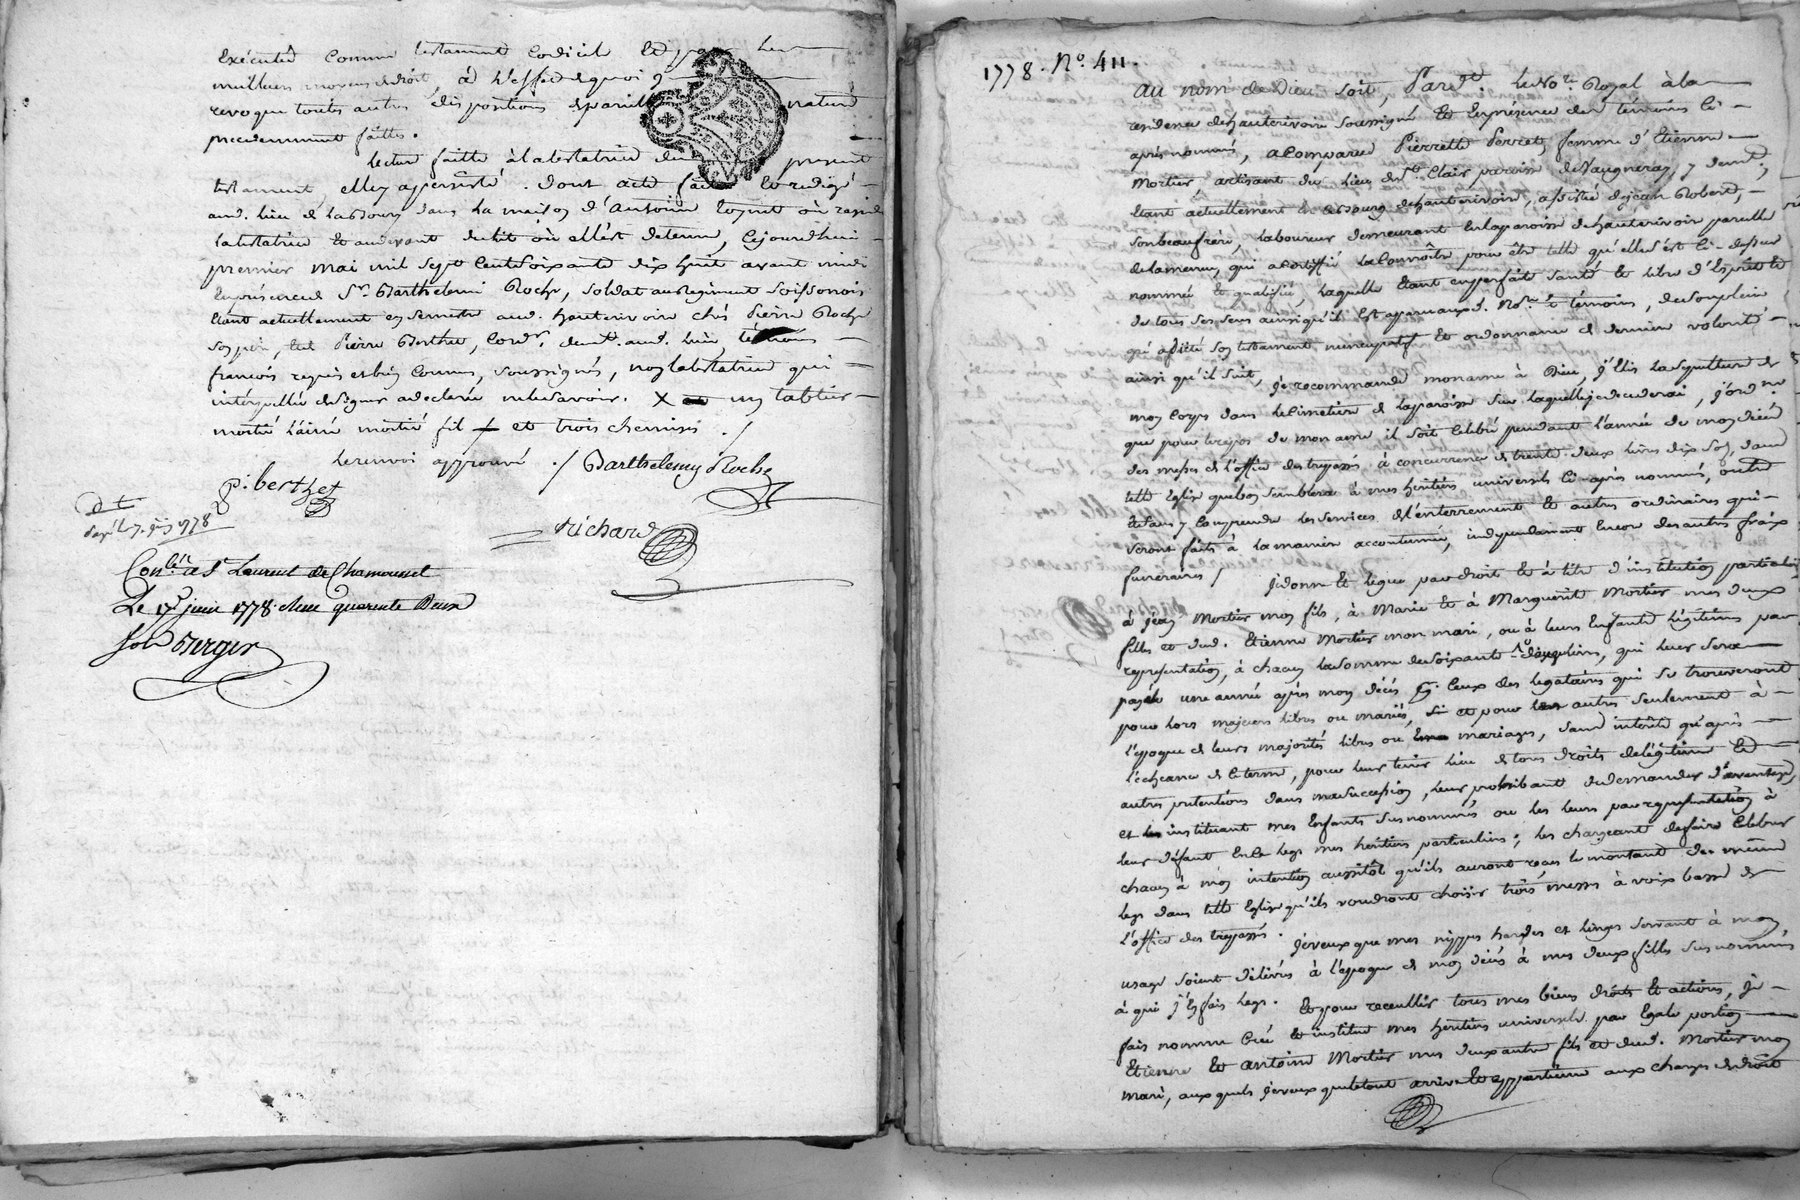 Exécuté Comme testament Codicil Et par les
meilleurs moyens de droit, à L'effet de quoi
revoque toutes autres dispositions de pareille nature
precedemment faittes.
Lecture faitte à la testatrice du present
testament, elle y a persisté. dont acte fait Et redigé
aud. lieu & la Bourg dans La maison d'Antoine où reside
la testatrice Et au devant du lit où elle est detenue, Cejourdhui
premier mai mil Sept Cent Soixante dix huit avant midi
En presence de Sr. Barthelemi Roche, soldat au Regiment Soissonois
Etant actuellement en Semestre aud. hauterivoire chés Pierre Roche
son pere, Et Pierre Berthet, Cordr. demt. aud. lieu, témoins
françois requis et bien Connus, soussignés, non la testatrice qui
interpellée de signer a declaré ne le savoir. X un tablier
mortié l'ainé mortié fil et trois chemises ./
Le renvoi approuvé ./ Barthelemy Roche
P: berthet
Richard
Conlé. à St Laurent de Chamousset
Le 17 juin 1778. Recu quarante Deux
Sols Berger
1778. No. 411.
Au nom de Dieu soit, Pardt. Le Nore. Royal à la
residence de hauterivoire soussigné Et En presence des témoins ci-
après nommés, a Comparu Pierrette Perret, femme d'Etienne
Mortier, artisant du lieu de St. Clair paroisse de Vaugneray, y demt.,
Etant actuellement en ce Bourg de hauterivoire, assistée de jean Robert,
son beaufrère, laboureur demeurant En la paroisse de hauterivoire pareille
de la mercery, qui a Certiffié la Connoître pour être telle qu'elle s'est ci-dessus
nommée Et qualifiée, laquelle Etant en parfaite santé Et libre d'Esprit Et
de tous Ses sens ainsi qu'il Est aparu aud. Nore. & témoins, de son plein
gré a dicté son testament nuncupatif Et ordonnance de derniere volonté
ainsi qu'il suit, je recommande mon ame à Dieu, j'Elis la sepulture de
mon Corps dans le Cimetière de la paroisse sur laquelle je decederai, j'ordne.
que pour le repos de mon ame il soit Célébré pendant l'année de mon décès
des messes de l'office des trepassés à concurrence de trente deux livres dix sols, dans
telle Eglise que bon semblera à mes heritiers universels ci-après nommés, outre
Et sans y Comprendre les services de l'enterrement Et autres ordinaires qui
seront faits à la maniere accoutumée, independament Encor des autres fraix
funeraires / Je donne Et legue par droit Et à titre d'institution particuliere
à jean Mortier mon fils, à Marie Et à Marguerite Mortier mes deux
filles et dud. Etienne Mortier mon mari, ou à leurs Enfants légitimes par
representation, à chacun la somme de soixante livres, qui leur sera
payée une année après mon décès pr. Ceux des legataires qui se trouveront
pour lors majeurs libres ou mariés, et pour les autres seulement à
l'epoque de leurs majorités libres ou mariages, sans interêts qu'après
l'écheance de ce terme, pour leur tenir lieu de tous droits de légitime Et
autres prétentions dans ma succession, leur prohibant de demander d'avantage,
et instituant mes Enfants susnommés ou les leurs par representation à
leur défaut En ce legs mes héritiers particuliers; les chargeant de faire Célébrer
chacun à mon intention aussitôt qu'ils auront reçu le montant de même
legs dans telle Eglise qu'ils voudront choisir trois messes à voix basse de
l'office des trepassés. Je veux que mes nippes hardes et linges servant à mon
usage soient délivrés à l'epoque de mon décès à mes deux filles susnommées
à qui j'En fais legs. Et pour receuillir tous mes biens droits Et actions, je
fais nomme Créé Et institue mes heritiers universels par Egale portion
Etienne Et antoine Mortier mes deux autres fils et dud. Mortier mon
mari, auxquels je veux que le tout arrive Et appartienne aux charges de droit